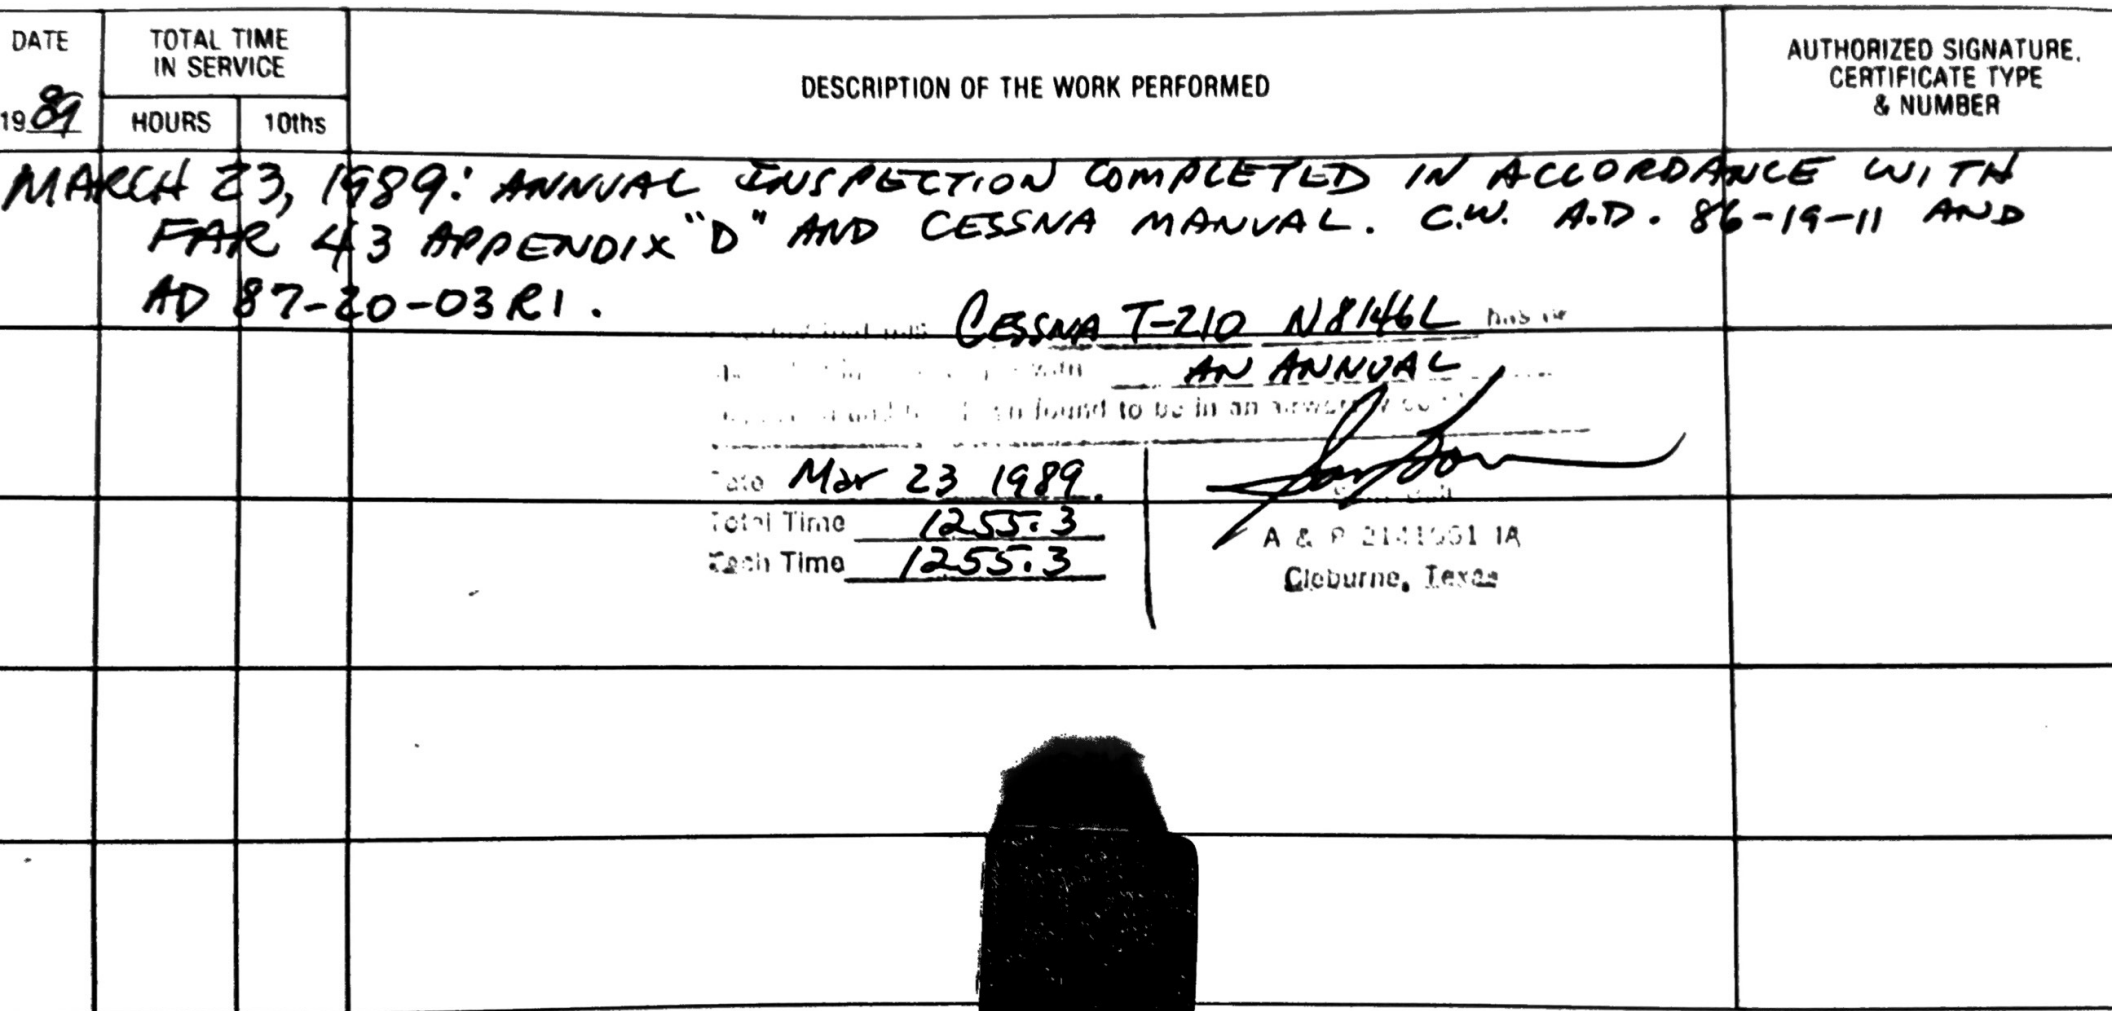 DATE
TOTAL TIME
IN SERVICE
DESCRIPTION OF THE WORK PERFORMED
AUTHORIZED SIGNATURE,
CERTIFICATE TYPE
& NUMBER
1989
HOURS
10ths
MARCH 23, 1989: ANNUAL INSPECTION COMPLETED IN ACCORDANCE WITH
FAR 43 APPENDIX "D" AND CESSNA MANUAL. C.W. A.D. 86-19-11 AND
AD 87-20-03 R1.
CESSNA T-210 N8146L has
AN ANNUAL
found to be in an
Date Mar 23 1989
Total Time 1255.3
Tach Time 1255.3
A & P IA
Cleburne, Texas